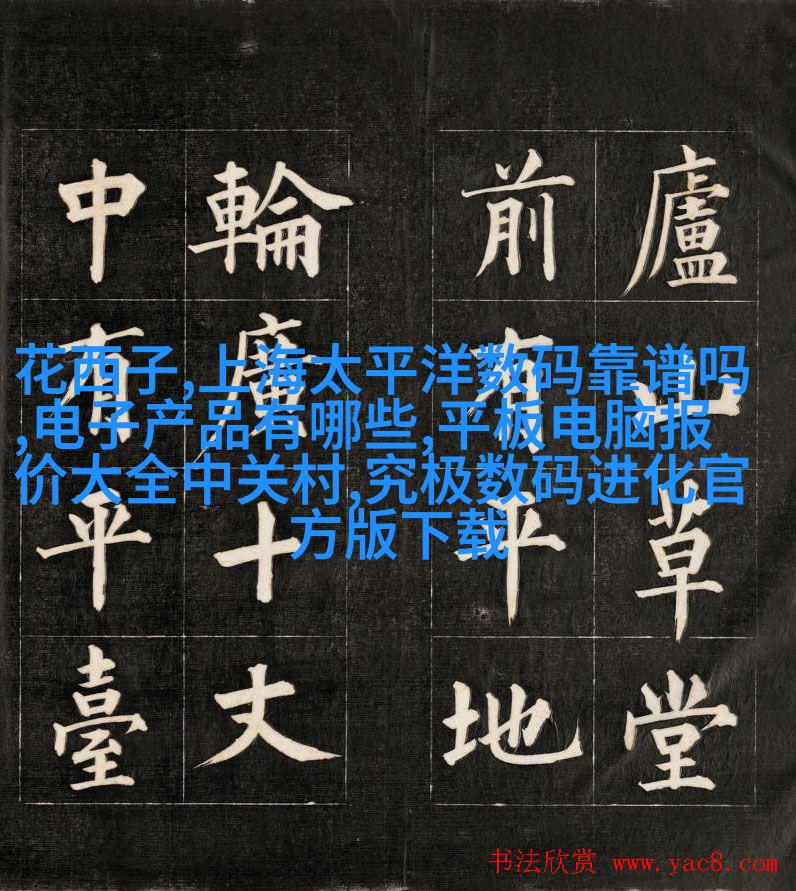 廬山草堂
前有平地
輪廣十丈
中有平臺
花西子,上海太平洋数码靠谱吗
,电子产品有哪些,平板电脑报
价大全中关村,究极数码进化官
方版下载
书法欣赏 www.yac8.com